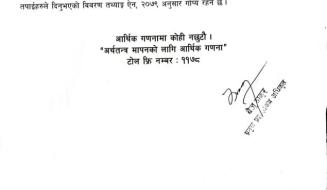 तपाईहरुले दिनुभएको विवरण तथ्याङ्क ऐन, २०७९ अनुसार गोप्य रहने छ ।
आर्थिक गणनामा कोही नछुटौं ।
"अर्थतन्त्र मापनको लागि आर्थिक गणना"
टोल फ्रि नम्बर : ११७८